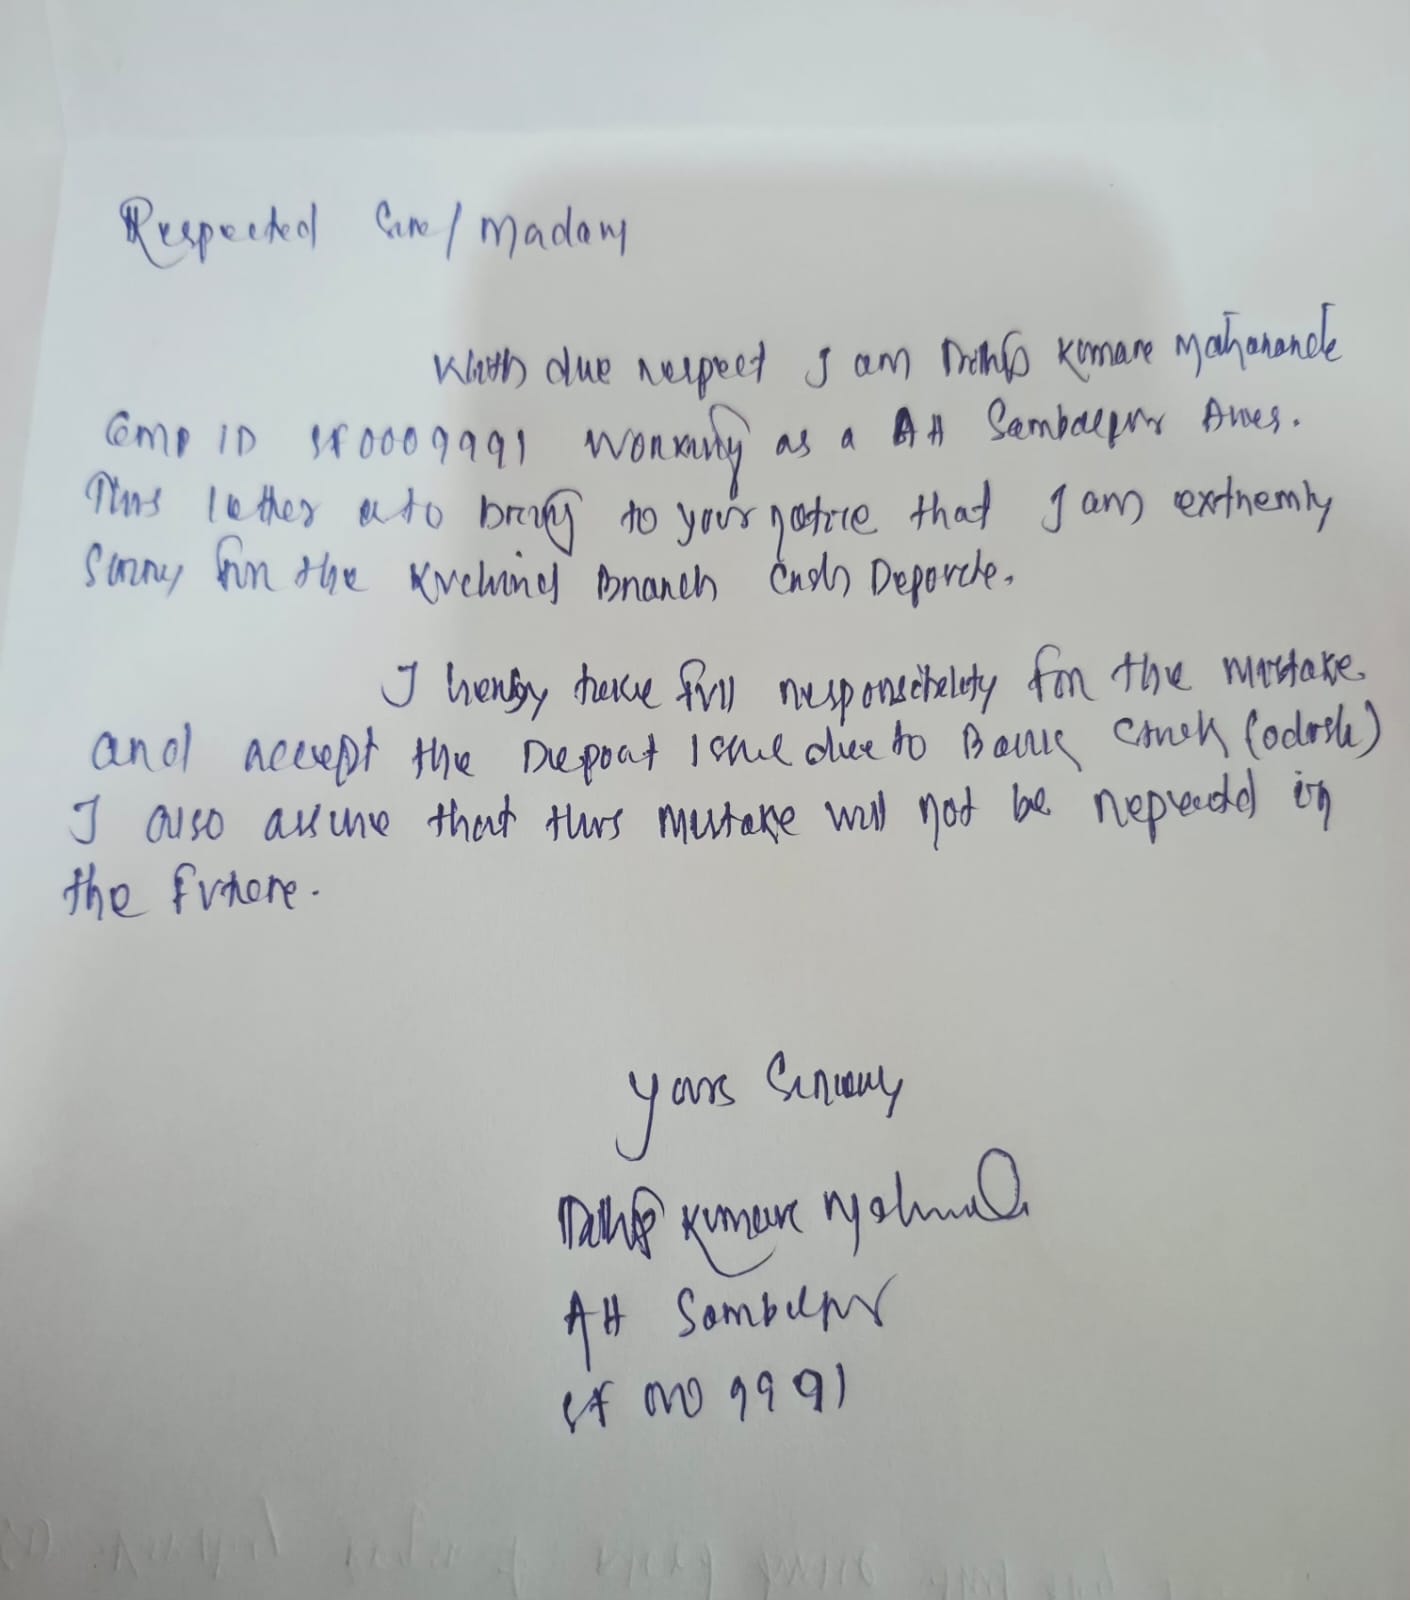 Respected Sir/Madam
With due respect I am Kumar Mahananda
Emp ID SF0009991 Working as a AH Sambalpur Area.
This letter is to bring to your notice that I am extremly
Sorry for the Kuchinda Branch Cash Deposite.
I hereby take full responsibility for the mistake
and accept the Deposit Issue due to Bank
I also assure that this mistake will not be repeated in
the future.
Yours Sincerely
Kumar
AH Sambalpur
SF 0009991